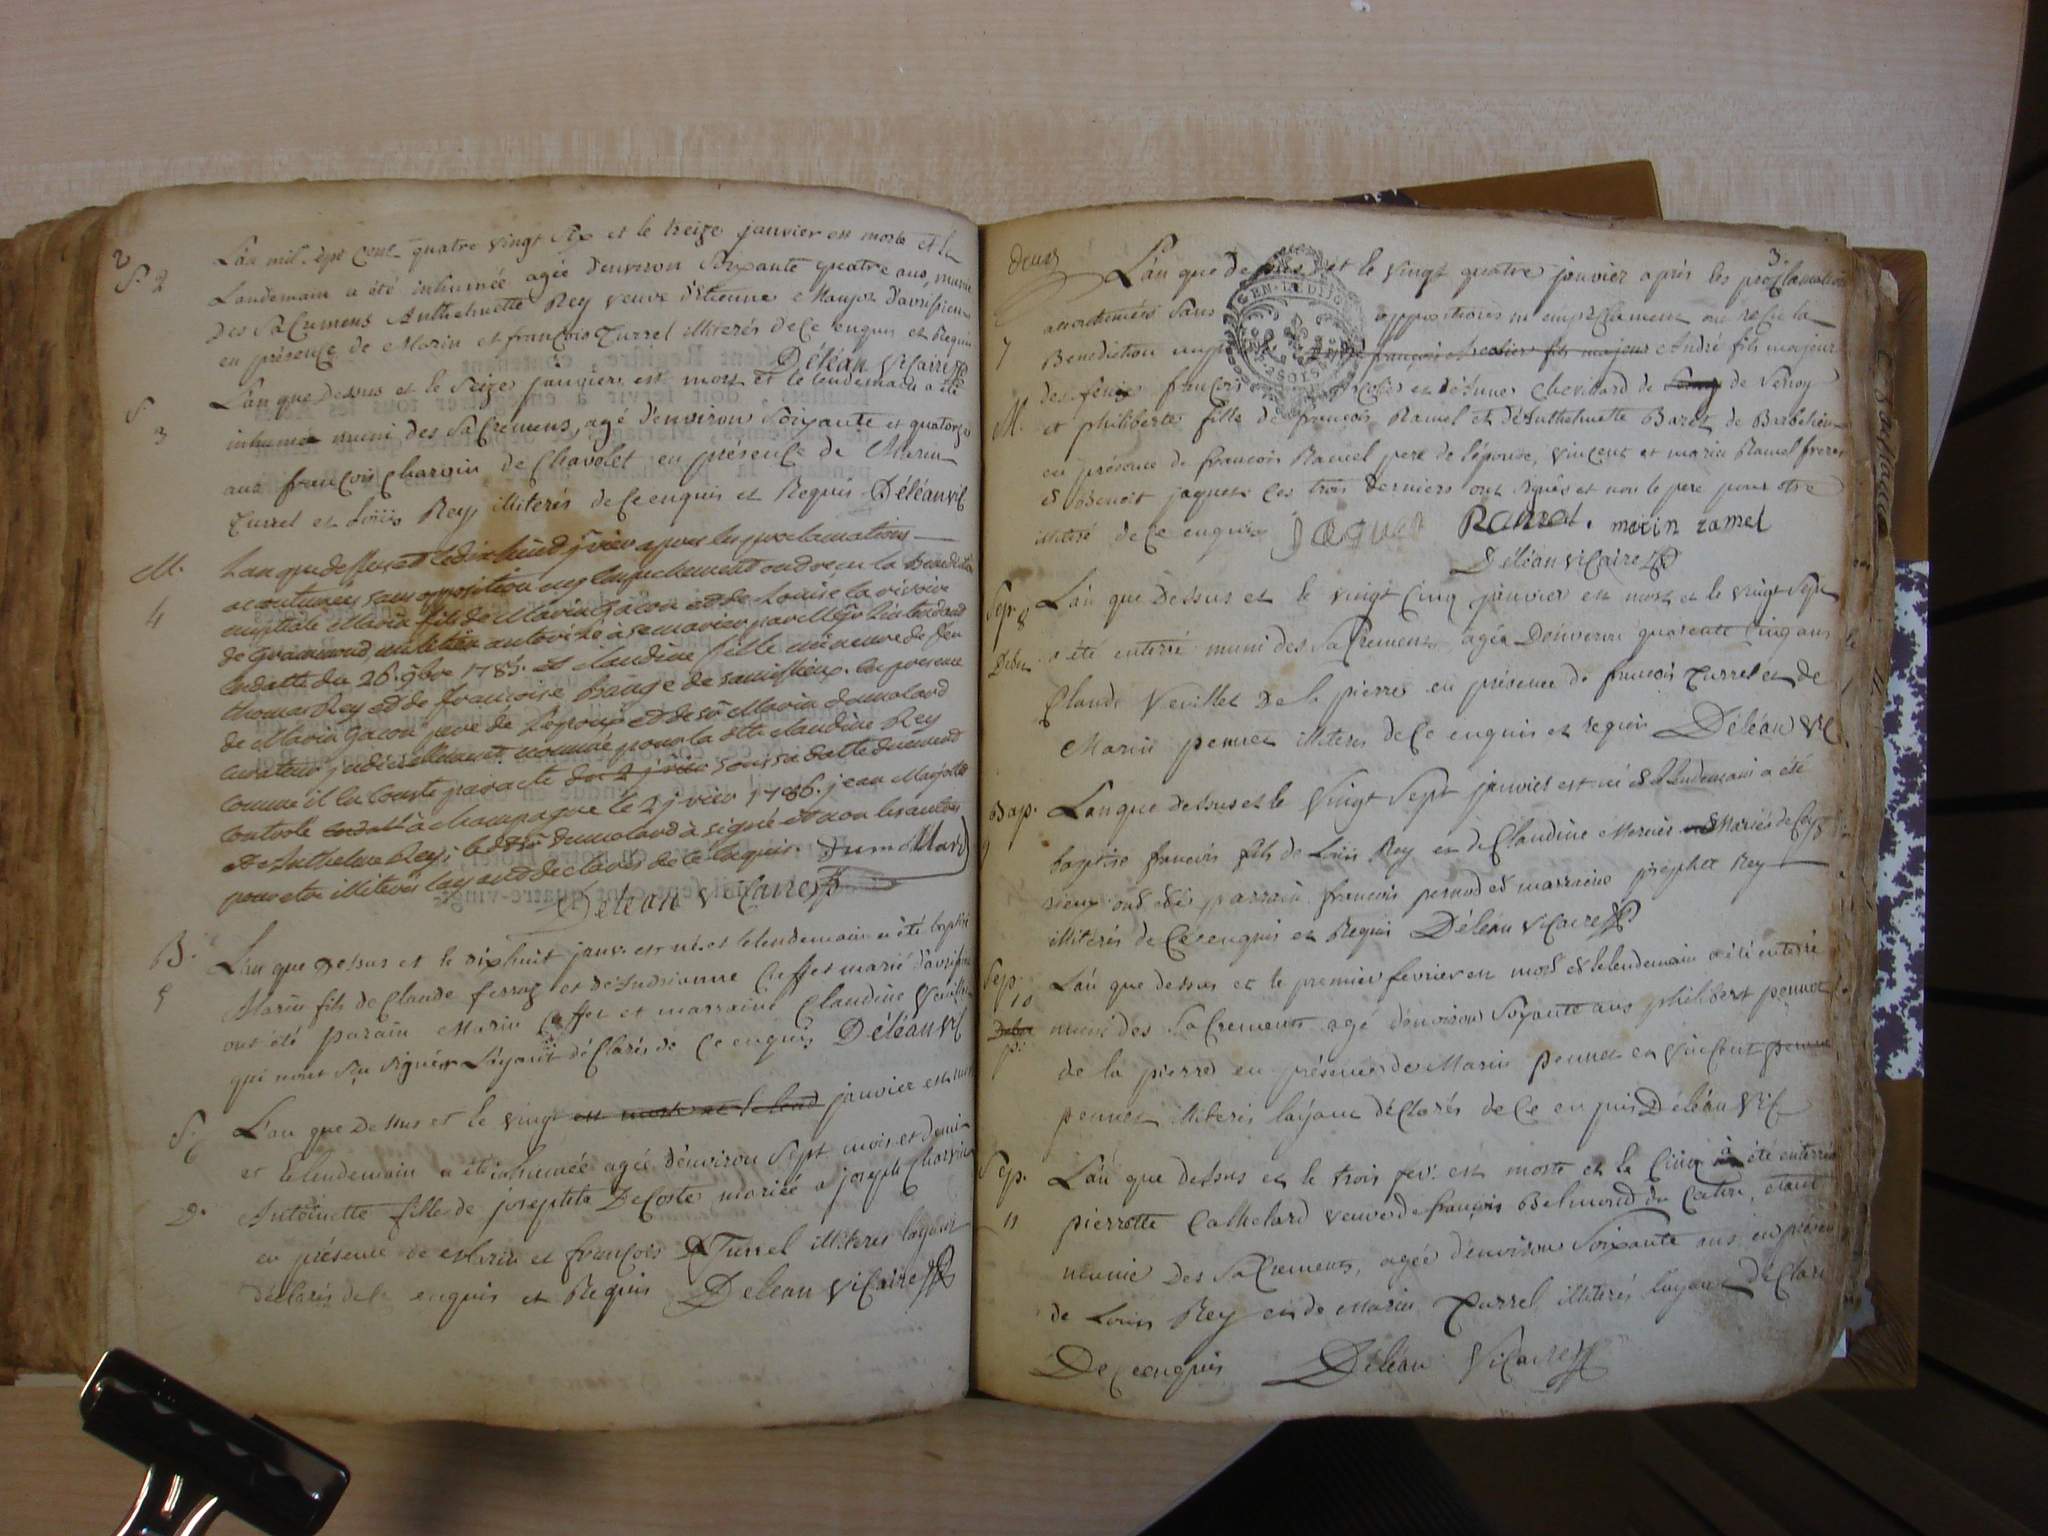 2
S. 2
L'an mil sept cent quatre vingt six et le treize janvier est morte et le
Landemain a été inhumée agée d'environ soixante quatre ans, munie
des sacremens Anthelmette Rey veuve d'Etienne Maujot d'avrissieu
en présence de Marin et françois Turrel illiterés de ce enquis et Requis
Déléan vicaire
S. 3
L'an que dessus et le seize janvier est mort et le lendemain a été
inhumé muni des sacremens, agé d'environ soixante et quatorze
ans françois Charvin de Chavolet en présence de Marin
Turrel et Loüis Rey illiterés de ce enquis et Requis Déléan vic
M. 4
L'an que dessus et le dix huit jvier apres les proclamations
acoutumées sans opposition ny empechement ont recu la Benediction
nuptiale Marin fils de Marin Gacon et de Louise la rivoire
de Grammond, milicien autorizé à se marier par Mgr L'intendant
en datte du 26. 9bre 1785. et claudine fille mineure de feu
thomas Rey et de françoise bauge de samissieux. en presence
de Marin Gacon pere de l'epoux et de sr Marin dumolard
curateur judiciellement nommé pour la ditte claudine Rey
comme il en conste par acte du 2 jvier sous sa datte duement
controlé à champagne le 2 jvier 1786. jean Marjollet
et Anthelme Rey; le dt sr dumolard à signé et non les autres
pour etre illiterés layant declarés de ce enquis. Dumollard
Déléan vicaire
B. 5
L'an que dessus et le dixhuit janv. est né et le lendemain a été baptisé
Marin fils de Claude ferraz et d'Andrianne Caffet marié d'avrissieu
ont été parain Marin Caffet et marraine Claudine
qui nont sçu signer Layant déclarés de ce enquis Déléan vic
S. 6
L'an que dessus et le vingt est morte et le lend janvier est morte
et le lendemain a été inhumée agée d'environ sept mois et demi
D.
Antoinette fille de josephte Decoste mariée a joseph Charvin
en présence de Marin et françois Turrel illiterés layant
déclarés de ce enquis et Requis Deléan vicaire
deux
3.
7
M.
L'an que dessus et le vingt quatre janvier après les proclamations
accoutumées sans oppositions ni empechement ont reçu la
Benediction nuptiale françois fils majeur André fils majeur
des feus françois et de jeanne Chevillard de de Veroy
et philiberte fille de françois Ramel et d'Anthelmette Baret de
en présence de françois Ramel pere de l'épouse, vincent et marin Ramel freres
& Benoit jaquet les trois derniers ont signés et non le pere pour etre
illitéré de ce enquis JAQUET Ramel. marin ramel
Déléan vicaire
Sep. 8
L'an que dessus et le vingt cinq janvier est mort et le vingt sept
a été enterré muni des sacremens agée d'environ quarente cinq ans
Claude Veuillet de la pierre en présence de françois Turrel et de
Marin pennet illiteres de ce enquis et requis Déléan vic
Bap. 9
L'an que dessus et le vingt sept janvier est né & le lendemain a été
baptisé françois fils de Loüis Rey et de Claudine Mercier mariés de
sieux ont été parrain françois pernod et marraine josephte Rey
illiterés de ce enquis et Requis Déléan vicaire
Sep. 10
L'an que dessus et le premier fevrier est mort & le lendemain a été enterré
muni des sacremens agé d'environ soixante ans philibert pennet
de la pierre en présence de Marin pennet et vincent penne
pennet illiterés layant déclarés de ce enquis Déléan vic
Sep. 11
L'an que dessus et le trois fev. est morte et le cinq a été enterrée
pierrette Cathelard veuve de françois Belmond du Catire, étant
munie des sacrements, agée d'environ soixante ans, en présence
de Louis Rey et de Marin Turrel illiterés layant déclaré
De ce enquis Déléan vicaire
GEN. DE DIJON
2 SOLS